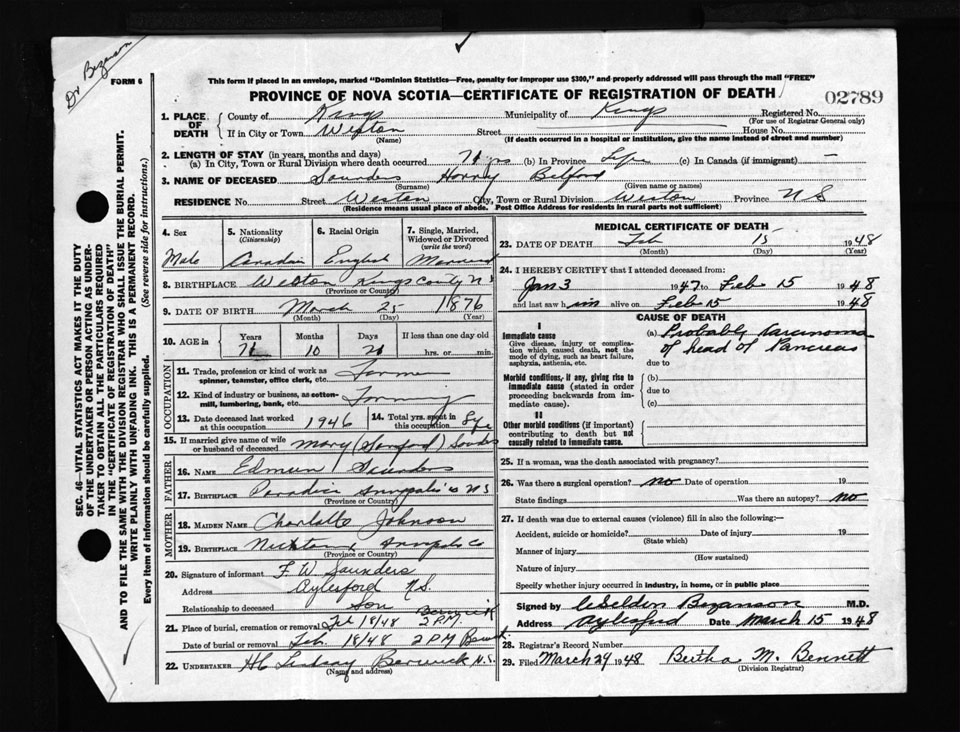 Dr Bezanson
FORM 6
This form if placed in an envelope, marked "Dominion Statistics—Free, penalty for improper use $300," and properly addressed will pass through the mail "FREE"
PROVINCE OF NOVA SCOTIA—CERTIFICATE OF REGISTRATION OF DEATH
02789
1. PLACE OF DEATH
County of Kings Municipality of Kings Registered No.
(For use of Registrar General only)
If in City or Town Weston Street House No.
(Name) (If death occurred in a hospital or institution, give the name instead of street and number)
2. LENGTH OF STAY (in years, months and days)
(a) In City, Town or Rural Division where death occurred 71 yrs (b) In Province Life (c) In Canada (if immigrant) —
3. NAME OF DECEASED Saunders Harry Belford
(Surname) (Given name or names)
RESIDENCE No. Street Weston City, Town or Rural Division Weston Province N S
(Residence means usual place of abode. Post Office Address for residents in rural parts not sufficient)
4. Sex Male
5. Nationality (Citizenship) Canadian
6. Racial Origin English
7. Single, Married, Widowed or Divorced (write the word) Married
8. BIRTHPLACE Weston Kings County N S
(Province or Country)
9. DATE OF BIRTH March 25 1876
(Month) (Day) (Year)
10. AGE in Years Months Days If less than one day old
71 10 21 hrs. or min.
OCCUPATION
11. Trade, profession or kind of work as spinner, teamster, office clerk, etc. Farmer
12. Kind of industry or business, as cotton-mill, lumbering, bank, etc. Farming
13. Date deceased last worked at this occupation 1946
14. Total yrs. spent in this occupation Life
15. If married give name of wife or husband of deceased Mary (Sanford) Saunders
FATHER
16. NAME Edmun Saunders
17. BIRTHPLACE Paradice Annapolis Co N S
(Province or Country)
MOTHER
18. MAIDEN NAME Charlotte Johnson
19. BIRTHPLACE Nicktan, Annapolis Co
(Province or Country)
20. Signature of informant F. W. Saunders
Address Aylesford N.S.
Relationship to deceased Son
21. Place of burial, cremation or removal Feb 18/48 Berwick 2 P.M.
Date of burial or removal Feb. 18/48 2 P M Berwick
22. UNDERTAKER H C Lindsay Berwick N.S.
(Name and address)
MEDICAL CERTIFICATE OF DEATH
23. DATE OF DEATH Feb 15 1948
(Month) (Day) (Year)
24. I HEREBY CERTIFY that I attended deceased from:
Jan 3 1947 to Feb 15 1948
and last saw him alive on Feb 15 1948
CAUSE OF DEATH
I
Immediate cause
Give disease, injury or complication which caused death, not the mode of dying, such as heart failure, asphyxia, asthenia, etc.
(a) Probably Carcinoma
of head of Pancreas
due to
Morbid conditions, if any, giving rise to immediate cause (stated in order proceeding backwards from immediate cause).
(b)
due to
(c)
II
Other morbid conditions (if important) contributing to death but not causally related to immediate cause.
25. If a woman, was the death associated with pregnancy?
26. Was there a surgical operation? no Date of operation 19
State findings Was there an autopsy? no
27. If death was due to external causes (violence) fill in also the following:—
Accident, suicide or homicide? Date of injury 19
(State which)
Manner of injury
(How sustained)
Nature of injury
Specify whether injury occurred in industry, in home, or in public place
Signed by Weldon Bezanson M.D.
Address Aylesford Date March 15 1948
28. Registrar's Record Number
29. Filed March 24 1948 Bertha M. Bennett
(Division Registrar)
SEC. 46—VITAL STATISTICS ACT MAKES IT THE DUTY
OF THE UNDERTAKER OR PERSON ACTING AS UNDER-
TAKER TO OBTAIN ALL THE PARTICULARS REQUIRED
IN THE "CERTIFICATE OF REGISTRATION OF DEATH"
AND TO FILE THE SAME WITH THE DIVISION REGISTRAR WHO SHALL ISSUE THE BURIAL PERMIT.
WRITE PLAINLY WITH UNFADING INK. THIS IS A PERMANENT RECORD.
Every item of information should be carefully supplied. (See reverse side for instructions.)